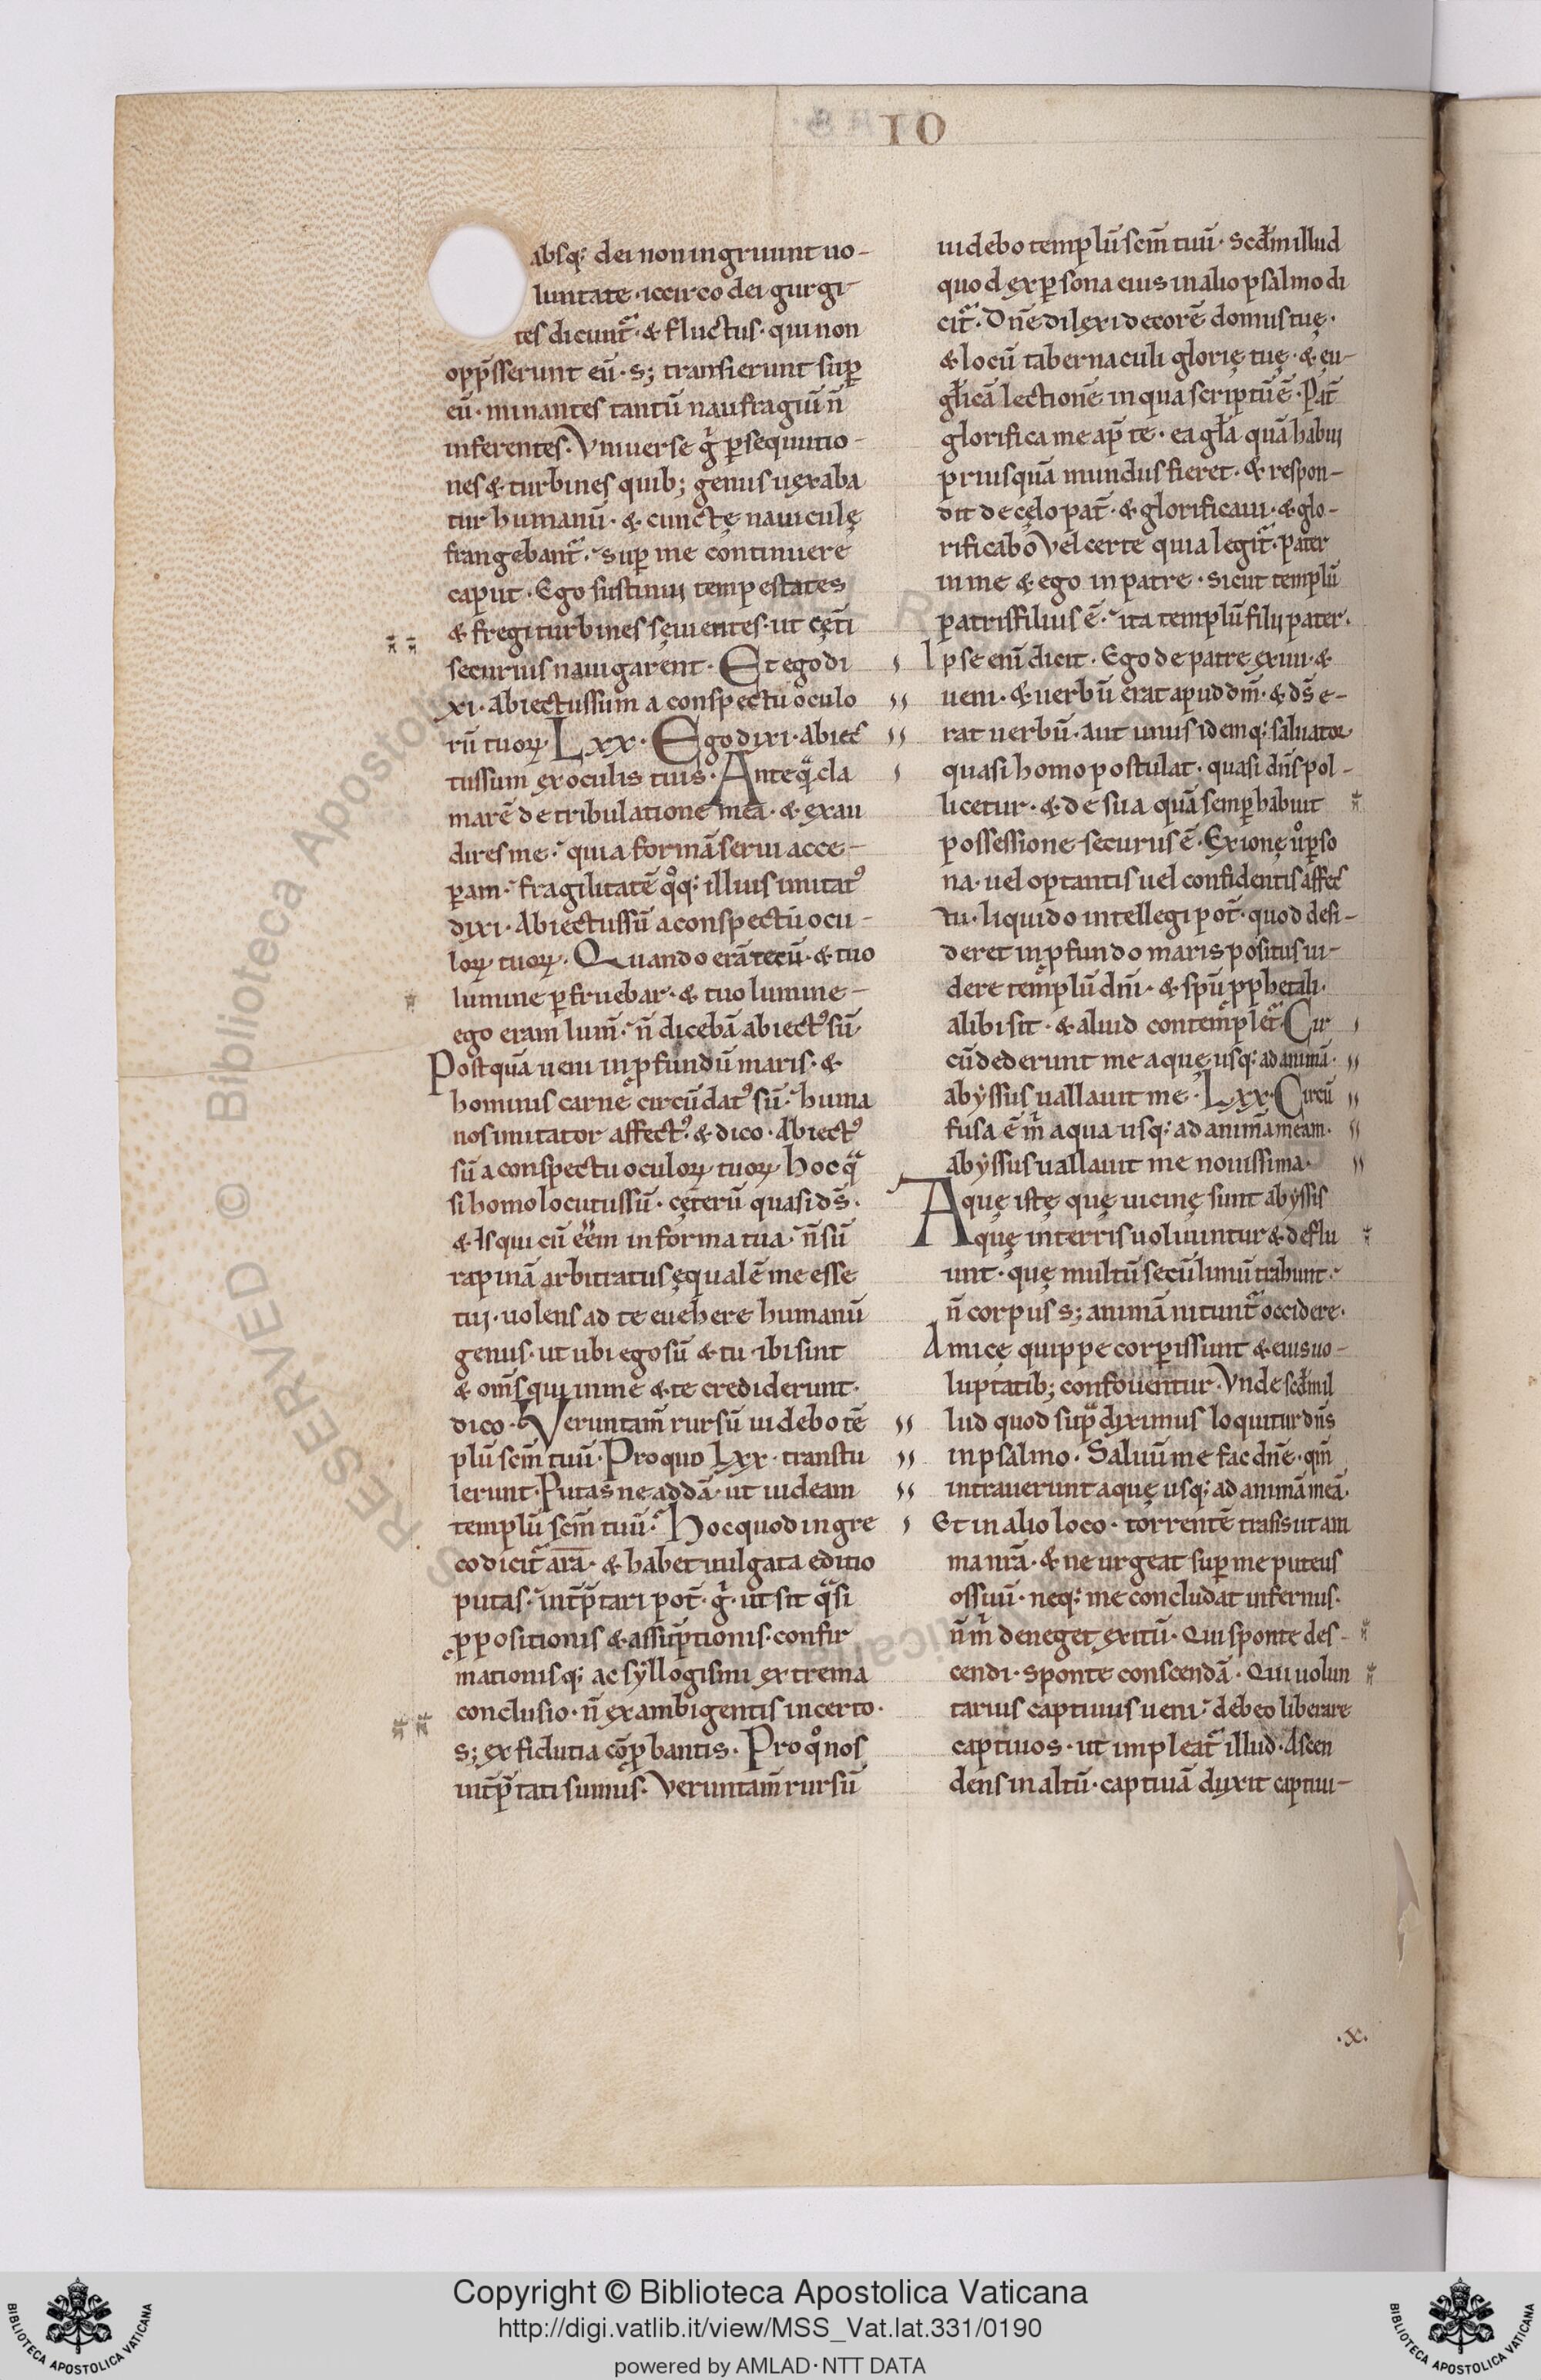 IO
absq; dei non ingruunt uo-
luntate · iccirco dei gurgi-
tes dicunt᷑ · & fluctus · qui non
opp̄sserunt eū · s; transierunt sup̱
eū · minantes tantū naufragiū n̄
inferentes. Vniuerse g̊ ꝑsequutio-
nes & turbines quib; genus uexaba
tur humanū · & cunctę nauiculę
frangebant᷑ · sup̱ me continuere
caput · Ego sustinui tempestates
& fregi turbines sęuientes · ut cęt̄i
securius nauigarent · Et ego di
xi · Abiectus sum a conspectu oculo
rū tuoꝝ · Lxx · Ego dixi · Abiec
tus sum ex oculis tuis · Anteqͣ cla
marē de tribulatione mea · & exau
dires me · quia formā serui acce-
ꝑam · fragilitatē qͦq; illius imitatꝰ
dixi · Abiectus sū a conspectu ocu-
loꝝ tuoꝝ · Quando erā tecū · & tuo
lumine ꝑfruebar · & tuo lumine-
ego eram lum̄ · n̄ dicebā abiectꝰ sū ·
Postquā ueni in ꝓfundū maris · &
hominis carne circūdatꝰ sū · huma
nos imitator affectꝰ · & dico · Abiectꝰ
sū a conspectu oculoꝝ tuoꝝ · hoc qͣ
si homo locutus sū · cęterū quasi ds̄ ·
& Is qui cū eēm in forma tua · n̄ sū
rapinā arbitratus ęqualē me esse
tij · uolens ad te euehere humanū
genus · ut ubi ego sū & tu · ibi sint
& om̄s qui in me & te crediderunt ·
dico · Veruntam̄ rursū uidebo tē
plū sc̄m tuū · Pro quo Lxx · transtu
lerunt · Putasne addā · ut uideam
templū sc̄m tuū · Hoc quod in gre
co dicit᷑ ara · & habet uulgata editio
putas · int̄p̄tari pot̄ · g̊ · ut sit qͣsi
ꝓpositionis & assūp̄tionis · confir
mationisq; ac syllogismi extrema
conclusio · n̄ ex ambigentis incerto ·
s; ex fidutia cōꝓbantis · Pro qͦ nos
int̄p̄tati sumus · Veruntam̄ rursū
uidebo templū sc̄m tuū · Scd̄m illud
quod ex ꝑsona eius in alio psalmo di
cit᷑ · Dn̄e dilexi decorē domus tuę ·
& locū tabernaculi glorię tuę · & eu-
gl̄icā lectionē in qua scriptū ē · Pat̄
glorifica me ap̄ te · ea gl̄a quā habui
priusquā mundus fieret · & respon-
dit de cęlo pat̄ · & glorificaui · & glo-
rificabo Vel certe quia legit᷑ · pater
in me & ego in patre · sicut templū
patris filius ē · ita templū filij pater ·
Ipse enī dicit · Ego de patre exiui · &
ueni · & uerbū erat apud dm̄ · & ds̄ e-
rat uerbū · aut unus idemq; saluator
quasi homo postulat · quasi dn̄s pol-
licetur · & de sua quā semꝑ habuit
possessione securus ē · Ex ionę ū̊ ꝑso
na · uel optantis uel confidentis affec
tu · liquido intellegi pot̄ · quod desi-
deret in ꝓfundo maris positus ui-
dere templū dn̄i · & sp̄u ꝓphetali ·
alibi sit · & aliud contemplet᷑ · Cir
cūdederunt me aquę usq; ad animā ·
abyssus uallauit me · Lxx · Circū
fusa ē m̊ aqua usq; ad animā meam ·
abyssus uallauit me nouissima ·
Aquę istę quę uicinę sunt abyssis
quę in terris uoluuntur & deflu
unt · quę multū secū limū trahunt ·
n̄ corpus s; animā nitunt᷑ occidere ·
Amicę quippe corꝑis sunt & eius uo-
luptatib; confouentur · Vnde scd̄m il
lud quod supͣ diximus loquitur dn̄s
in psalmo · Saluū me fac dn̄e · qm̄
intrauerunt aquę usq; ad animā meā ·
Et in alio loco · torrentē trāsiuit am
ma nr̄a · & ne urgeat sup̱ me puteus
os suū · neq; me concludat infernus ·
n̄ m̊ deneget exitū · Qui sponte des-
cendi · sponte conscendā · Qui uolun
tarius captiuus ueni · debeo liberare
captiuos · ut impleat᷑ illud · Ascen
dens in altū · captiuā duxit captiui-
· x ·
Copyright © Biblioteca Apostolica Vaticana
http://digi.vatlib.it/view/MSS_Vat.lat.331/0190
powered by AMLAD·NTT DATA
BIBLIOTECA APOSTOLICA VATICANA
BIBLIOTECA APOSTOLICA VATICANA